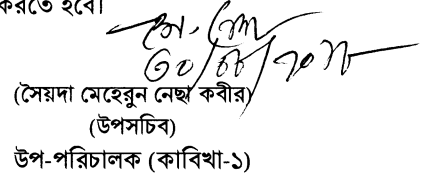 করতে হবে।
(সৈয়দা মেহেরুন নেছা কবীর)
(উপসচিব)
উপ-পরিচালক (কাবিখা-১)